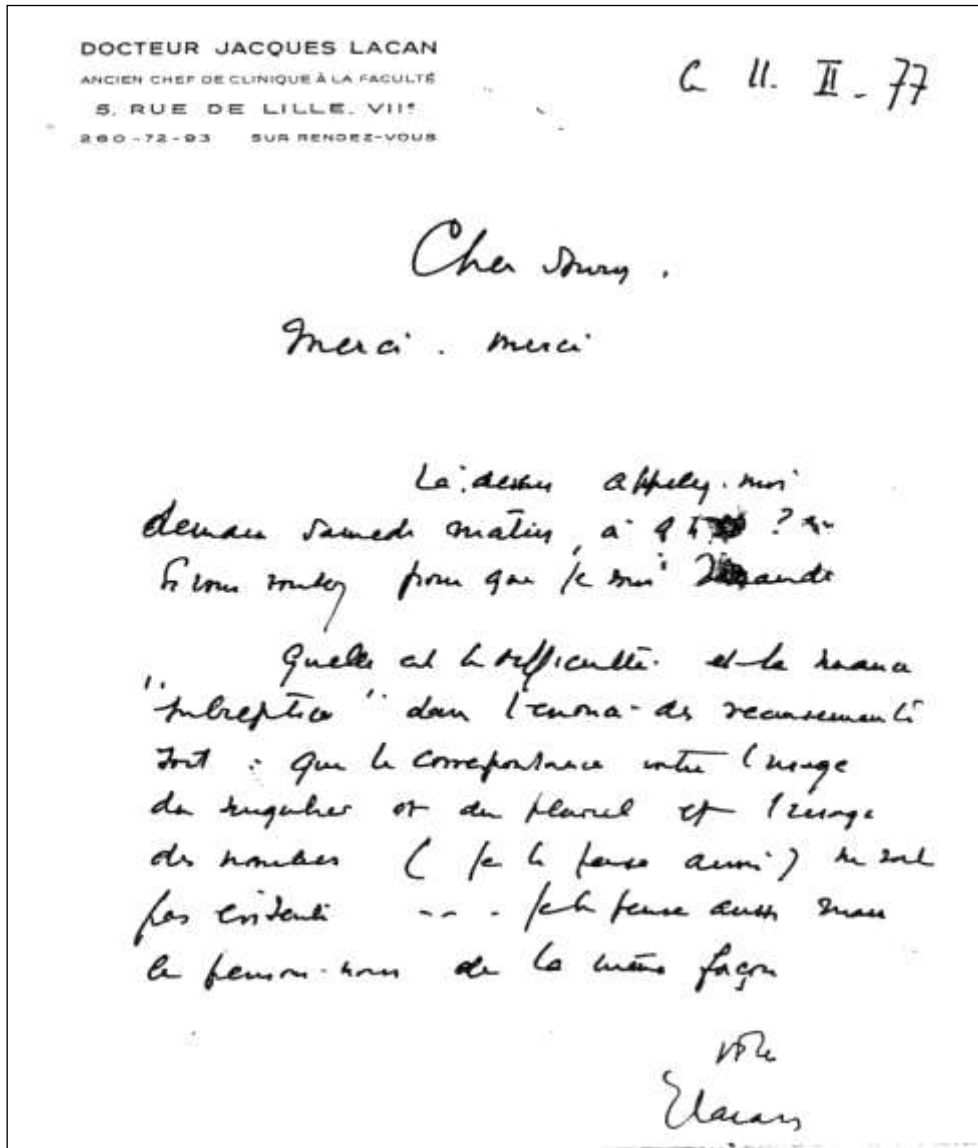 DOCTEUR JACQUES LACAN
ANCIEN CHEF DE CLINIQUE À LA FACULTÉ
5, RUE DE LILLE. VIIe
260-72-93 SUR RENDEZ-VOUS
Le 11. II. 77
Cher Soury.
Merci. merci
Là-dessus appelez-moi
demain samedi matin, à 9 h ?
Si vous voulez pour que je vous demande
Quelle est la difficulté et la nuance
"subreptice" dans l'énoncé des recensements
soit : que la correspondance entre l'usage
du singulier et du pluriel et l'usage
des nombres (je le pense aussi) ne soit
pas évidente --- je le pense aussi mais
le pensons-nous de la même façon
votre
JLacan